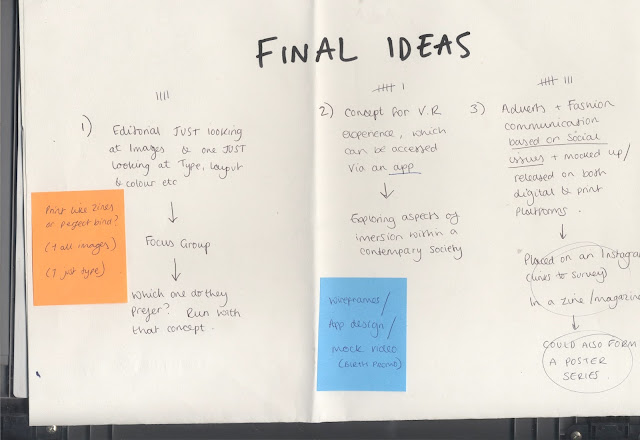 FINAL IDEAS
1) Editorial JUST looking
at Images & one JUST
looking at Type, Layout
& colour etc
Focus Group
Which one do they
Prefer? Run with
that concept.
Print like Zines
or perfect bind?
(1 all images)
(1 just type)
2) Concept for V.R
experience, which
can be accessed
via an app
Exploring aspects of
imersion within a
contempary society
Wireframes/
App design/
mock video
3) Adverts + Fashion
communication
based on social
issues + mocked up/
released on both
digital & print
platforms.
Placed on an Instagram
(links to survey)
In a zine/magazine
COULD ALSO FORM
A POSTER
SERIES.